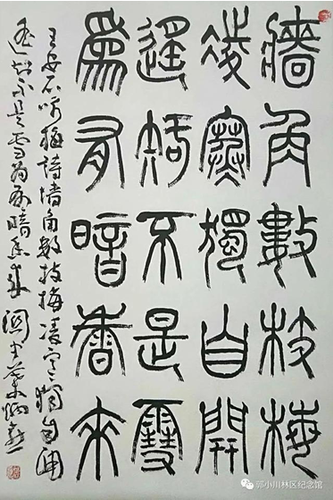 牆角數枝梅
凌寒獨自開
遥知不是雪
爲有暗香來
王安石咏梅詩墙角数枝梅凌寒独自開
遥知不是雪为有暗香来
郭小川林区纪念馆